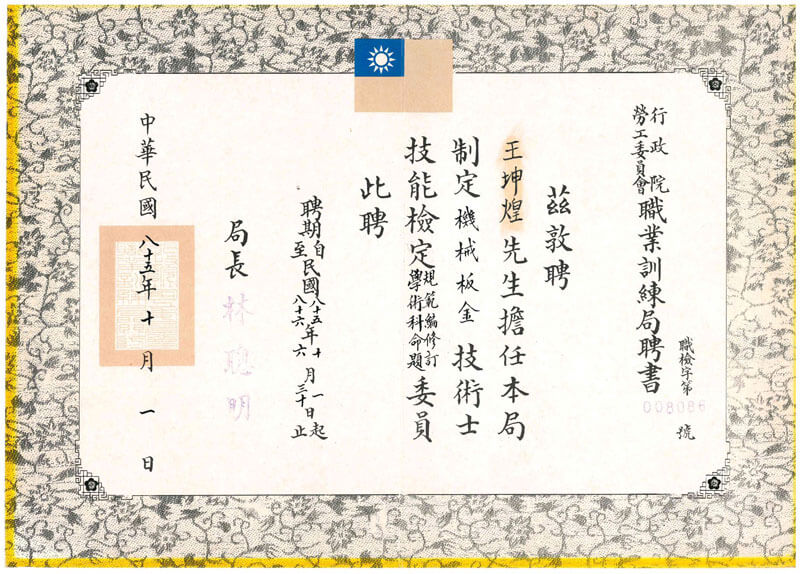 行政院勞工委員會職業訓練局聘書
職檢字第008086號
茲敦聘
王坤煌先生擔任本局
制定機械板金技術士
技能檢定規範編修訂學術科命題委員
此聘
聘期自民國八十五年十月一日起
至民國八十六年六月三十日止
局長林聰明
中華民國八十五年十月一日